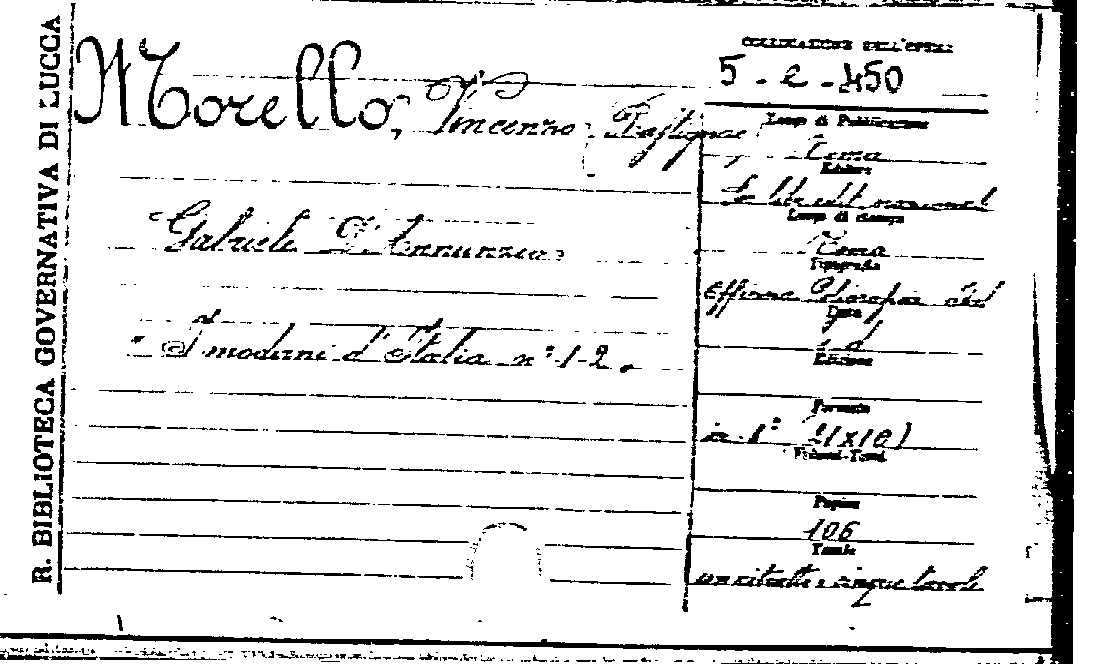 R. BIBLIOTECA GOVERNATIVA DI LUCCA
Morello, Vincenzo (Rastignac)
Gabriele D'Annunzio
"I moderni d'Italia n° 1-2.
COLLOCAZIONE DELL'OPERA
5-2-450
Luogo di Pubblicazione
Roma
Editore
So lib. edit. nazionale
Luogo di stampa
Roma
Tipografia
Officina Poligrafica
Data
s. d.
Edizione
Formato
in 8°
Volumi-Tomi
Pagine
106
Tavole
un ritratto e cinque tavole